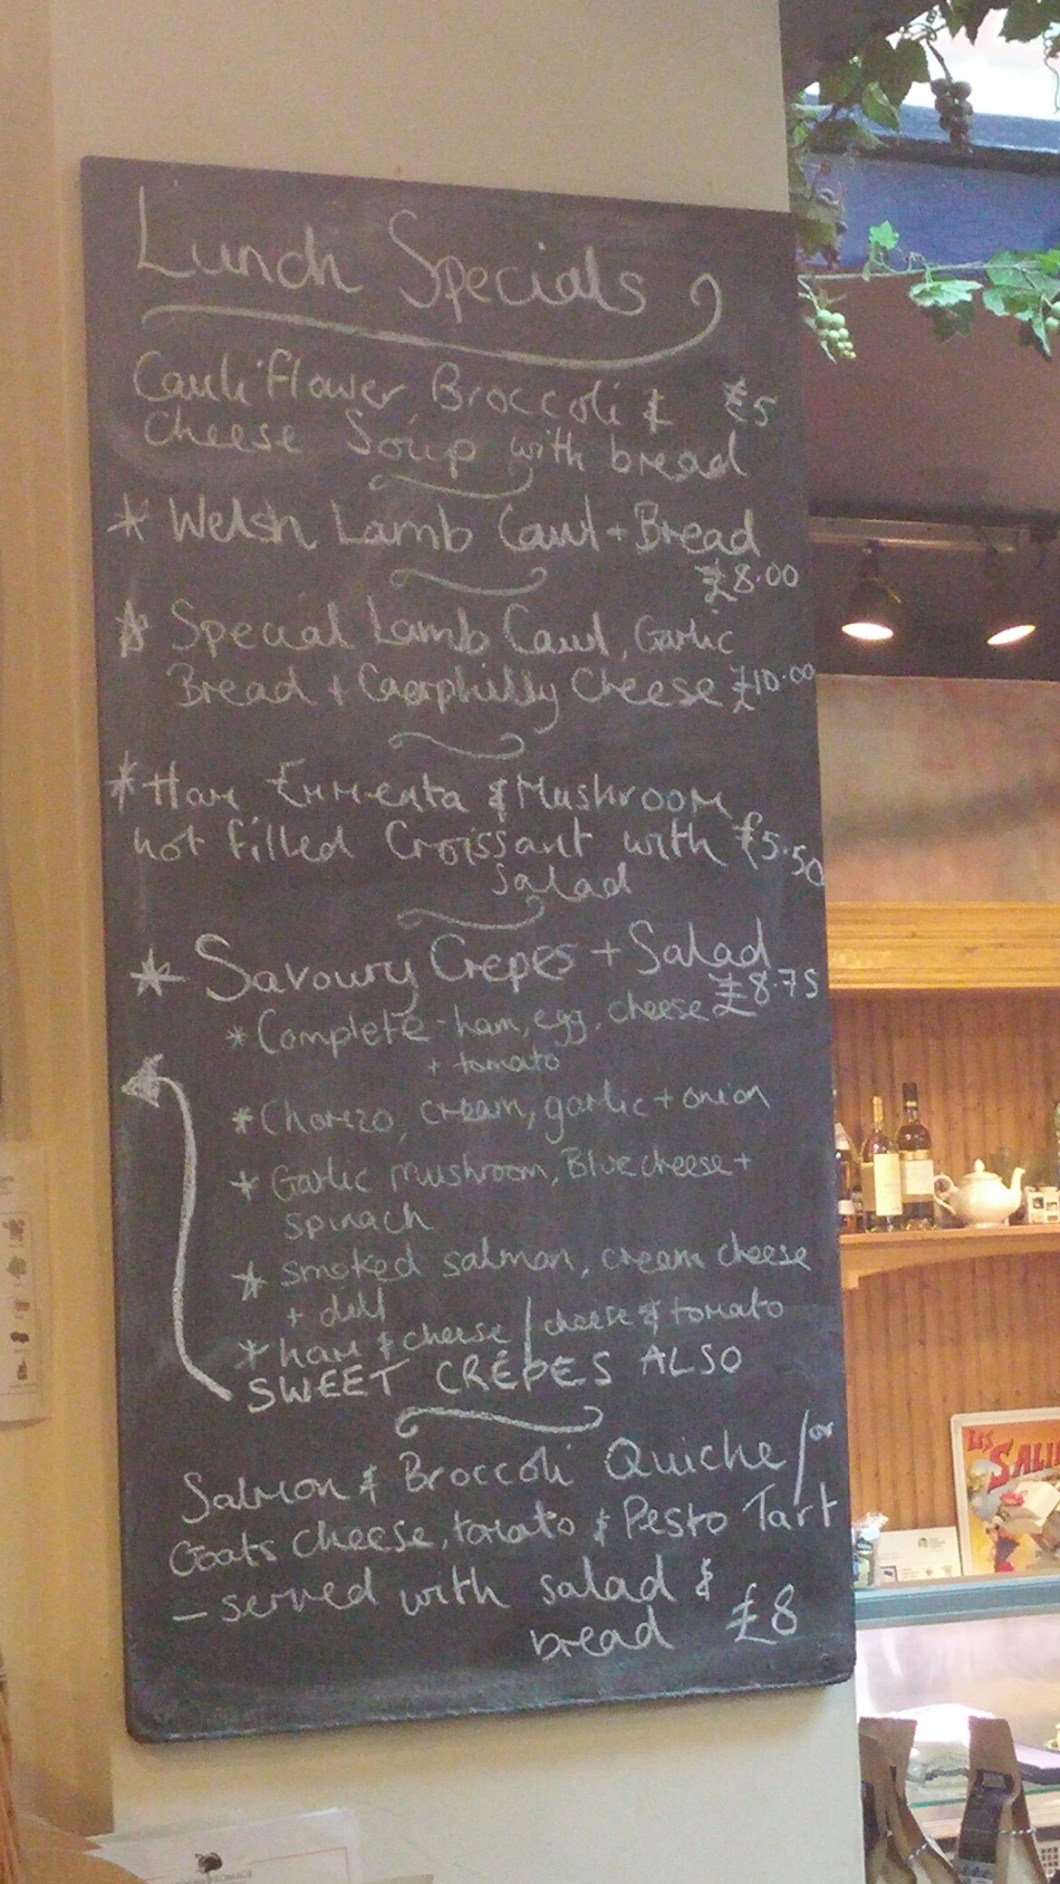 Lunch Specials
Cauliflower, Broccoli & £5
Cheese Soup with bread
* Welsh Lamb Cawl + Bread
£8.00
* Special Lamb Cawl, Garlic
Bread + Caerphilly Cheese £10.00
* Ham, Emmenta & Mushroom
hot filled Croissant with £5.50
salad
* Savoury Crepes + Salad
£8.75
* Complete - ham, egg, cheese
+ tomato
* Chorizo, cream, garlic + onion
* Garlic mushroom, Blue cheese +
spinach
* smoked salmon, cream cheese
+ dill
* ham & cheese / cheese & tomato
SWEET CRÊPES ALSO
Salmon & Broccoli Quiche / or
Goats cheese, tomato & Pesto Tart
- served with salad &
bread £8
LES
SALI